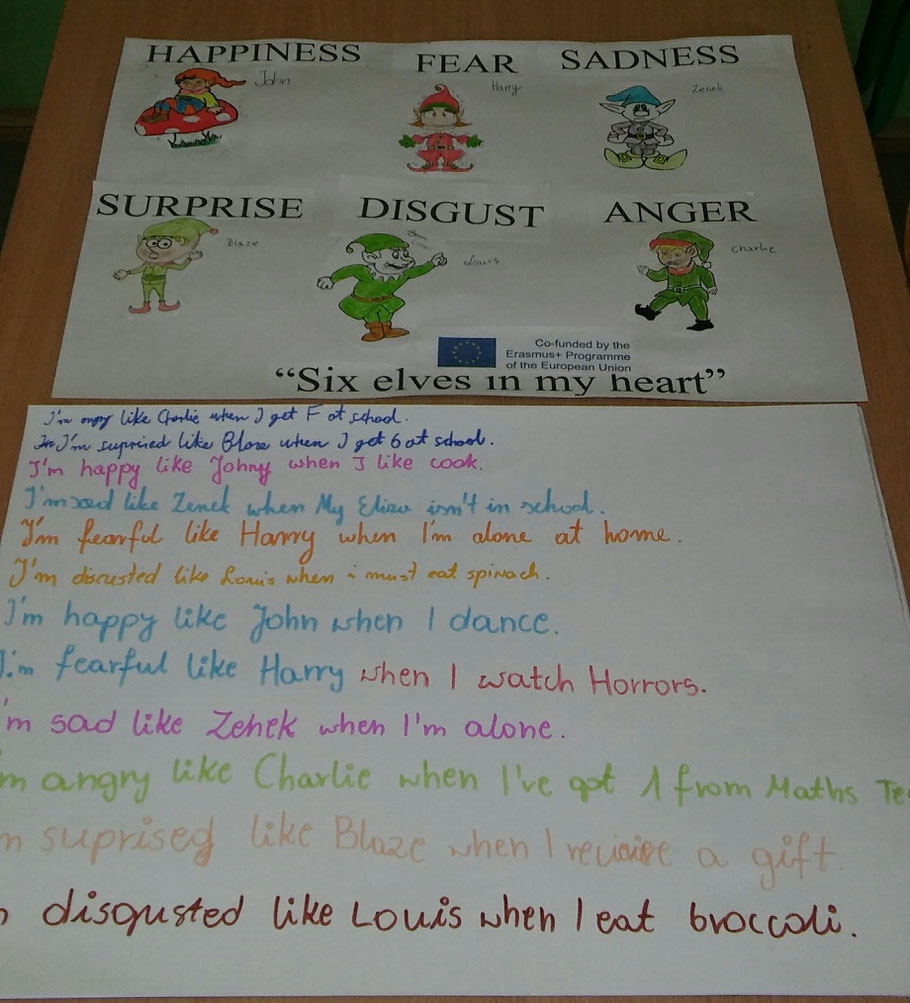 HAPPINESS FEAR SADNESS
John Harry Zenek
SURPRISE DISGUST ANGER
Blaze Louis Charlie
Co-funded by the
Erasmus+ Programme
of the European Union
“Six elves in my heart”
I'm angry like Charlie when I get F at school.
I'm suprised like Blaze when I get 6 at school.
I'm happy like Johny when I like cook.
I'm sad like Zenek when My Eliza isn't in school.
I'm fearful like Harry when I'm alone at home.
I'm discusted like Louis when i must eat spinach.
I'm happy like John when I dance.
I'm fearful like Harry when I watch Horrors.
'm sad like Zenek when I'm alone.
'm angry like Charlie when I've got 1 from Maths Te
m suprised like Blaze when I a gift.
disgusted like Louis when I eat broccoli.